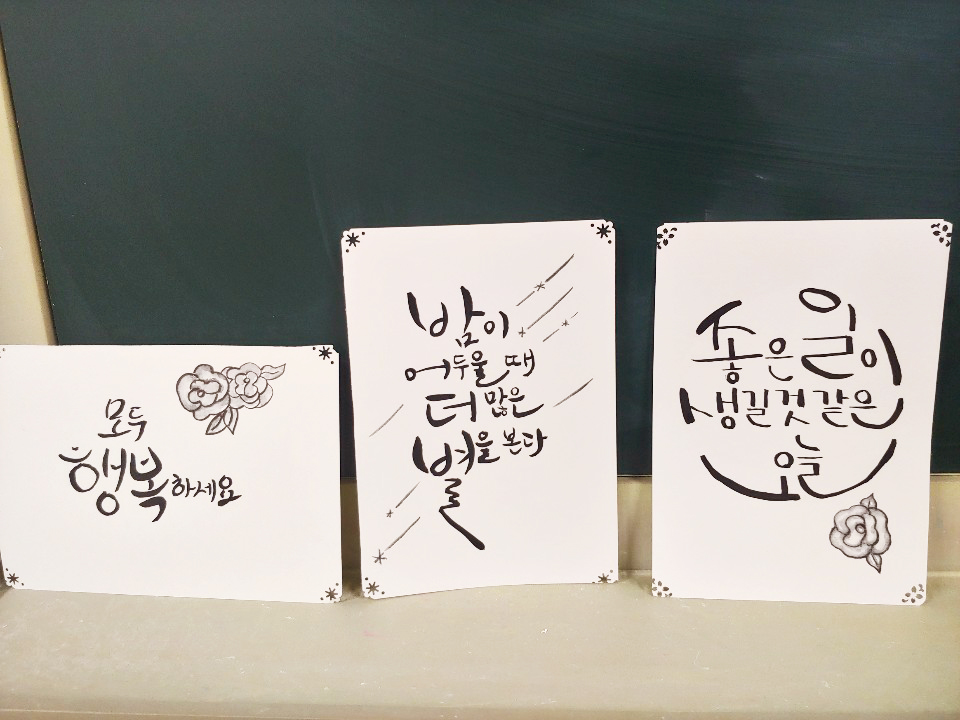 모두
행복하세요
밤이
어두울 때
더 많은
별을 본다
좋은 일이
생길것 같은
오늘